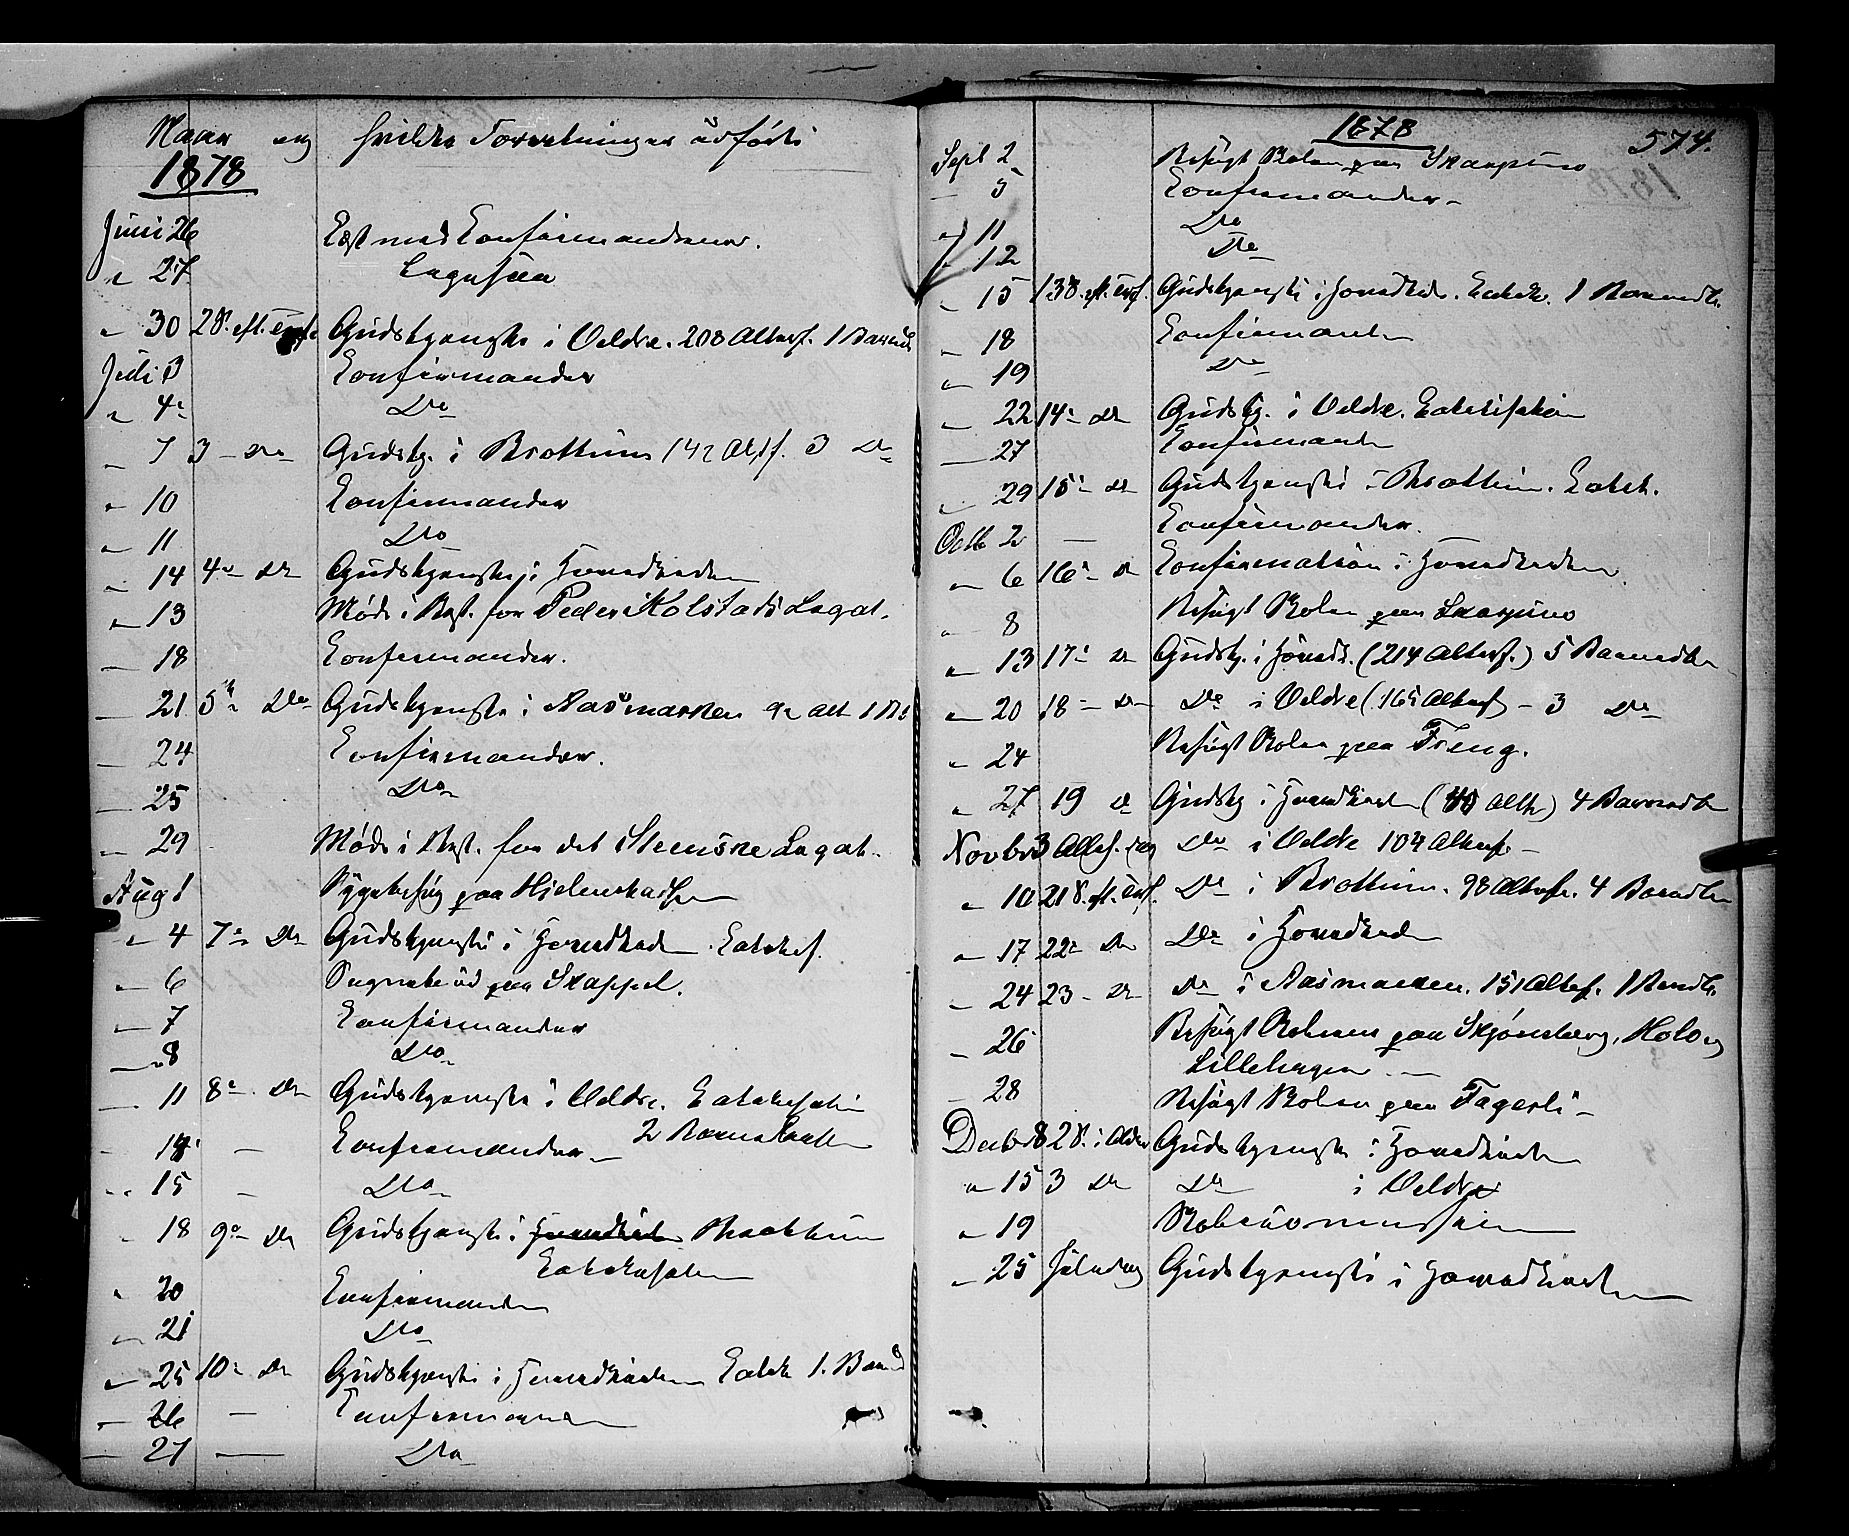 Naar og hvilke Forretninger udførte
1878
Juni 26 Læst med Konfirmanderne.
" 27 Lagasaa
" 30 2S. eft. Trefs Gudstjeneste i Veldre. 208 Alterg. 1 Barned
Juli 3 Konfirmander
" 4 Do
" 7 3 - Do Gudstj. i Brøttum 142 Altg. 3 Do
" 10 Konfirmander
" 11 Do
" 14 4 - Do Gudstjeneste i Hovedkirken
" 13 Møde i Best. for Peder Kolstads Legat.
- 18 Konfirmander.
- 21 5 - Do Gudstjeneste i Aasmarken 92 Alt 1 Bd
- 24 Konfirmander.
- 25 Do
- 29 Møde i Best. for det Stenske Legat.
Aug 1 Sygebesøg paa Hjelmstadsen
" 4 7 - Do Gudstjeneste i Hovedkirken. Katekes.
" 6 Sognebud paa Skappel.
- 7 Konfirmander
- 8 Do
- 11 8 - Do Gudstjeneste i Veldre. Katekesation
2 Barnedaab
- 14 - Konfirmander
" 15 - Do
" 18 9 - Do Gudstjeneste i Hovedkirken Brøttum
Katekesation
" 20 Konfirmander
" 21 Do
" 25 10 - Do Gudstjeneste i Hovedkirken Katek 1. Barned
- 26 - Konfirmander
- 27 - Do
1878 574.
Sept 2 Besøgt Skolen paa Skarpsno
- 5 Konfirmander
" 11 Do
" 12 Do
" 15 13S. eft. Tref. Gudstjeneste i Hovedkirk. Katek. 1 Barnedb.
" 18 Konfirmander
" 19 Do
" 22 14 - Do Gudstj. i Veldre. Katekisation
- 27 Konfirmander
" 29 15 - Do Gudstjeneste i Brøttum. Katek.
Octb 2 - Konfirmander.
" 6 16 - Do Konfirmation i Hovedkirken.
" 8 Besøgt Skolen paa Skarpsno
" 13 17 - Do Gudstj. i Hovedk. (214 Alterg.) 5 Barnedb
" 20 18 - Do Do i Veldre (165 Alterg - 3 Do
" 24 Besøgt Skolen paa Freng.
" 27 19 Do Gudstj i Hovedkirken (40 Altr) 4 Barnedb
Novbr 3 Alleh. Dag Do i Veldre 104 Alterg.
" 10 21S. eft. Tref. Do i Brøttum. 98 Alterg. 4 Barnedb
" 17 22 - Do Do i Hovedkirken
" 24 23 - Do Do i Aasmarken. 151 Alterg. 1 Barndb.
- 26 Besøgt Skolerne paa Skjønsberg, Holo og
Lillehagen
- 28 Besøgt Skolen paa Fagerli
Decbr 8 2S. i Adv Gudstjeneste i Hovedkirken
" 15 3 Do Do i Veldre
" 19 Skolekommission
" 25 Juledag Gudstjeneste i Hovedkirken